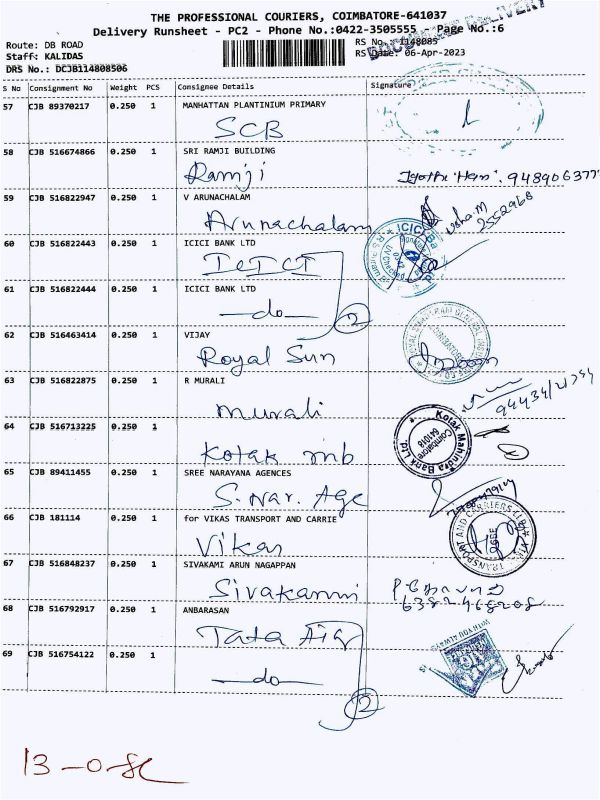 THE PROFESSIONAL COURIERS, COIMBATORE-641037
Delivery Runsheet - PC2 - Phone No.:0422-3505555 Page No.:6
Route: DB ROAD
Staff: KALIDAS
DRS No.: DCJB114808506
RS No.: 1148085
RS Date: 06-Apr-2023
S No Consignment No Weight PCS Consignee Details Signature
57 CJB 89370217 0.250 1 MANHATTAN PLANTINIUM PRIMARY
SCB
58 CJB 516674866 0.250 1 SRI RAMJI BUILDING
Ramji
59 CJB 516822947 0.250 1 V ARUNACHALAM
Arunachalam
60 CJB 516822443 0.250 1 ICICI BANK LTD
ICICI
61 CJB 516822444 0.250 1 ICICI BANK LTD
—do—
2
62 CJB 516463414 0.250 1 VIJAY
Royal Sun
63 CJB 516822875 0.250 1 R MURALI
murali
64 CJB 516713225 0.250 1
Kotak mb
Kotak Mahindra Bank Ltd.
Coimbatore
641018
65 CJB 89411455 0.250 1 SREE NARAYANA AGENCES
S. Nar. Age
66 CJB 181114 0.250 1 for VIKAS TRANSPORT AND CARRIE
Vikas
67 CJB 516848237 0.250 1 SIVAKAMI ARUN NAGAPPAN
Sivakammi
68 CJB 516792917 0.250 1 ANBARASAN
Tata Aig
WITH YOU ALWAYS
69 CJB 516754122 0.250 1
—do—
2